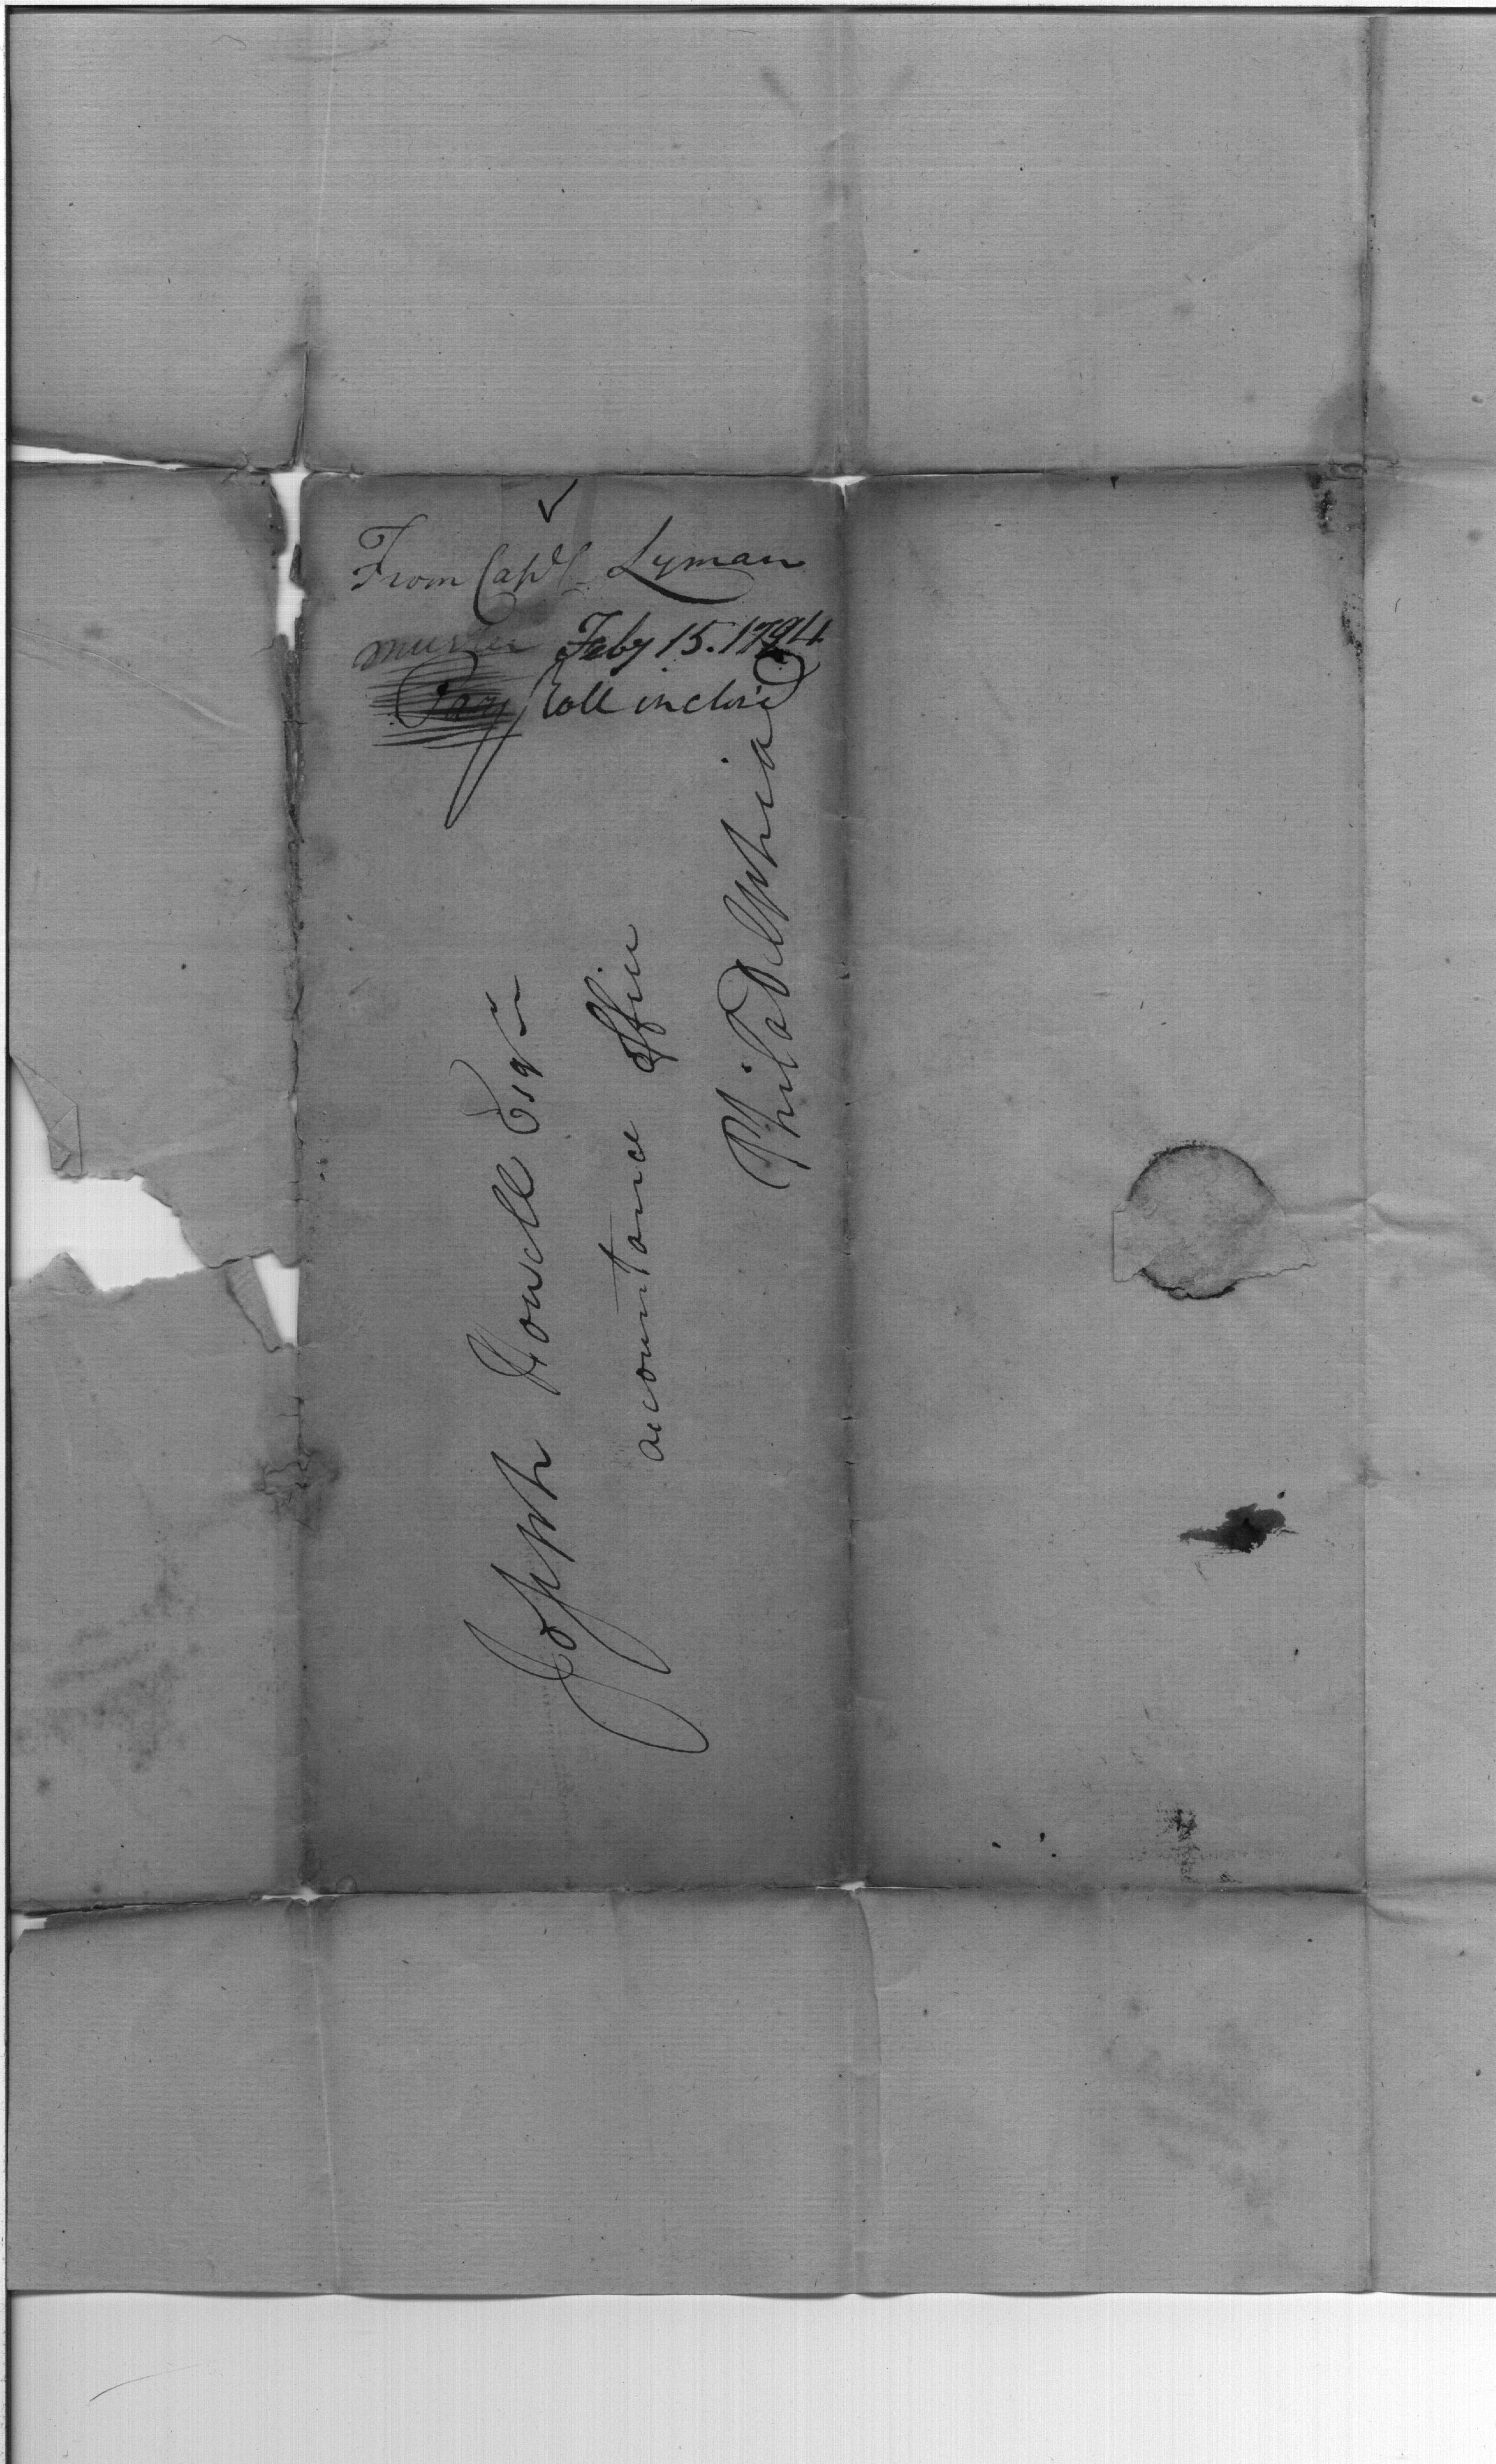 From Capt Lyman
muster Feby 15. 1794
Pay Roll inclos'd
Joseph Howell Esqr
accountance office
Philadelphia